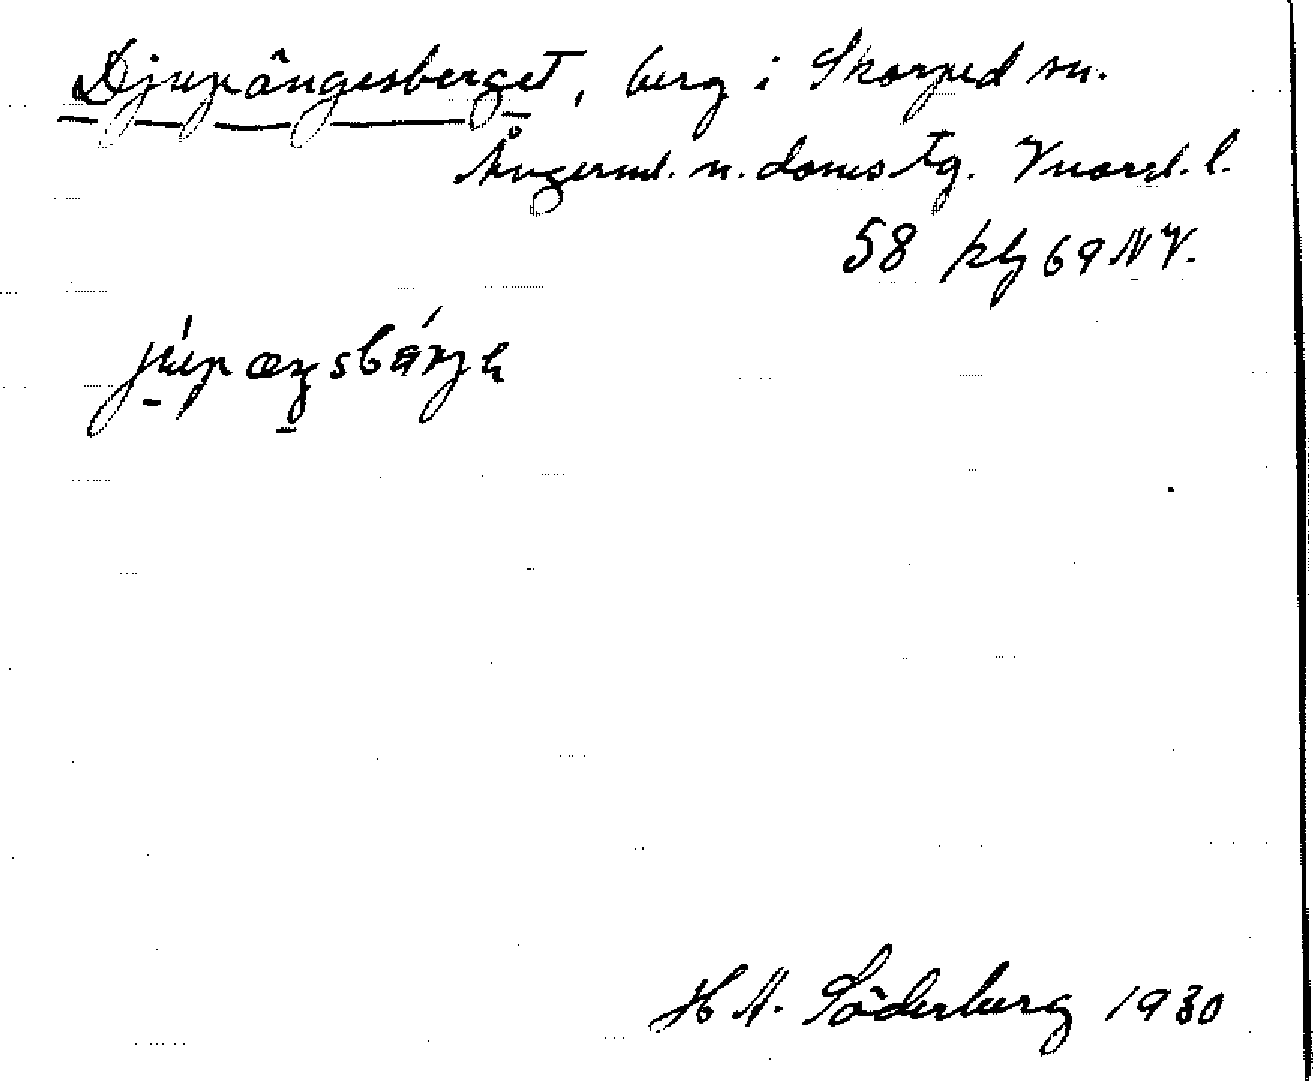 Djupängesberget, berg i Skorped sn.
Ångerml. n. doms tg. Vnorrl. l.
58 kbg 69 NV.
H A. Söderberg 1930